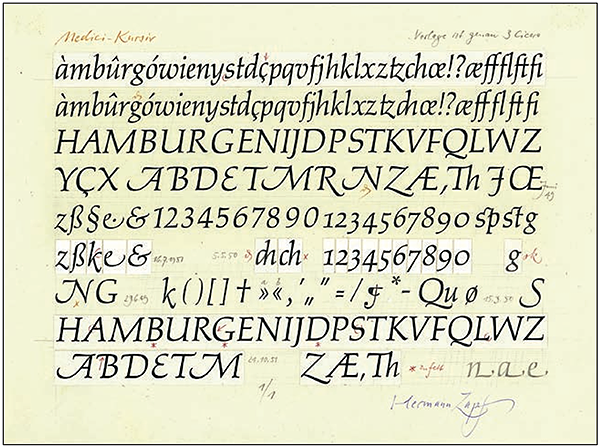 Medici-Kursiv Vorlage ist genau 3 Cicero
àmbûrgówienystdçpqvfjhklxztzchœ!?æffflftfi
àmbûrgówienystdçpqvfjhklxztzchœ!?æffflftfi
HAMBURGENIJDPSTKVFQLWZ
YÇX ABDETMRNZÆ,Th JŒ
zß§e&1234567890 1234567890 spstg
zßke& 5.5.50 chch 1234567890 g
NG k()[]†»«‚'„"=/*-Quø S
HAMBURGENIJDPSTKVFQLWZ
ABDETM ZÆ,Th
1/1 n a e
Hermann Zapf